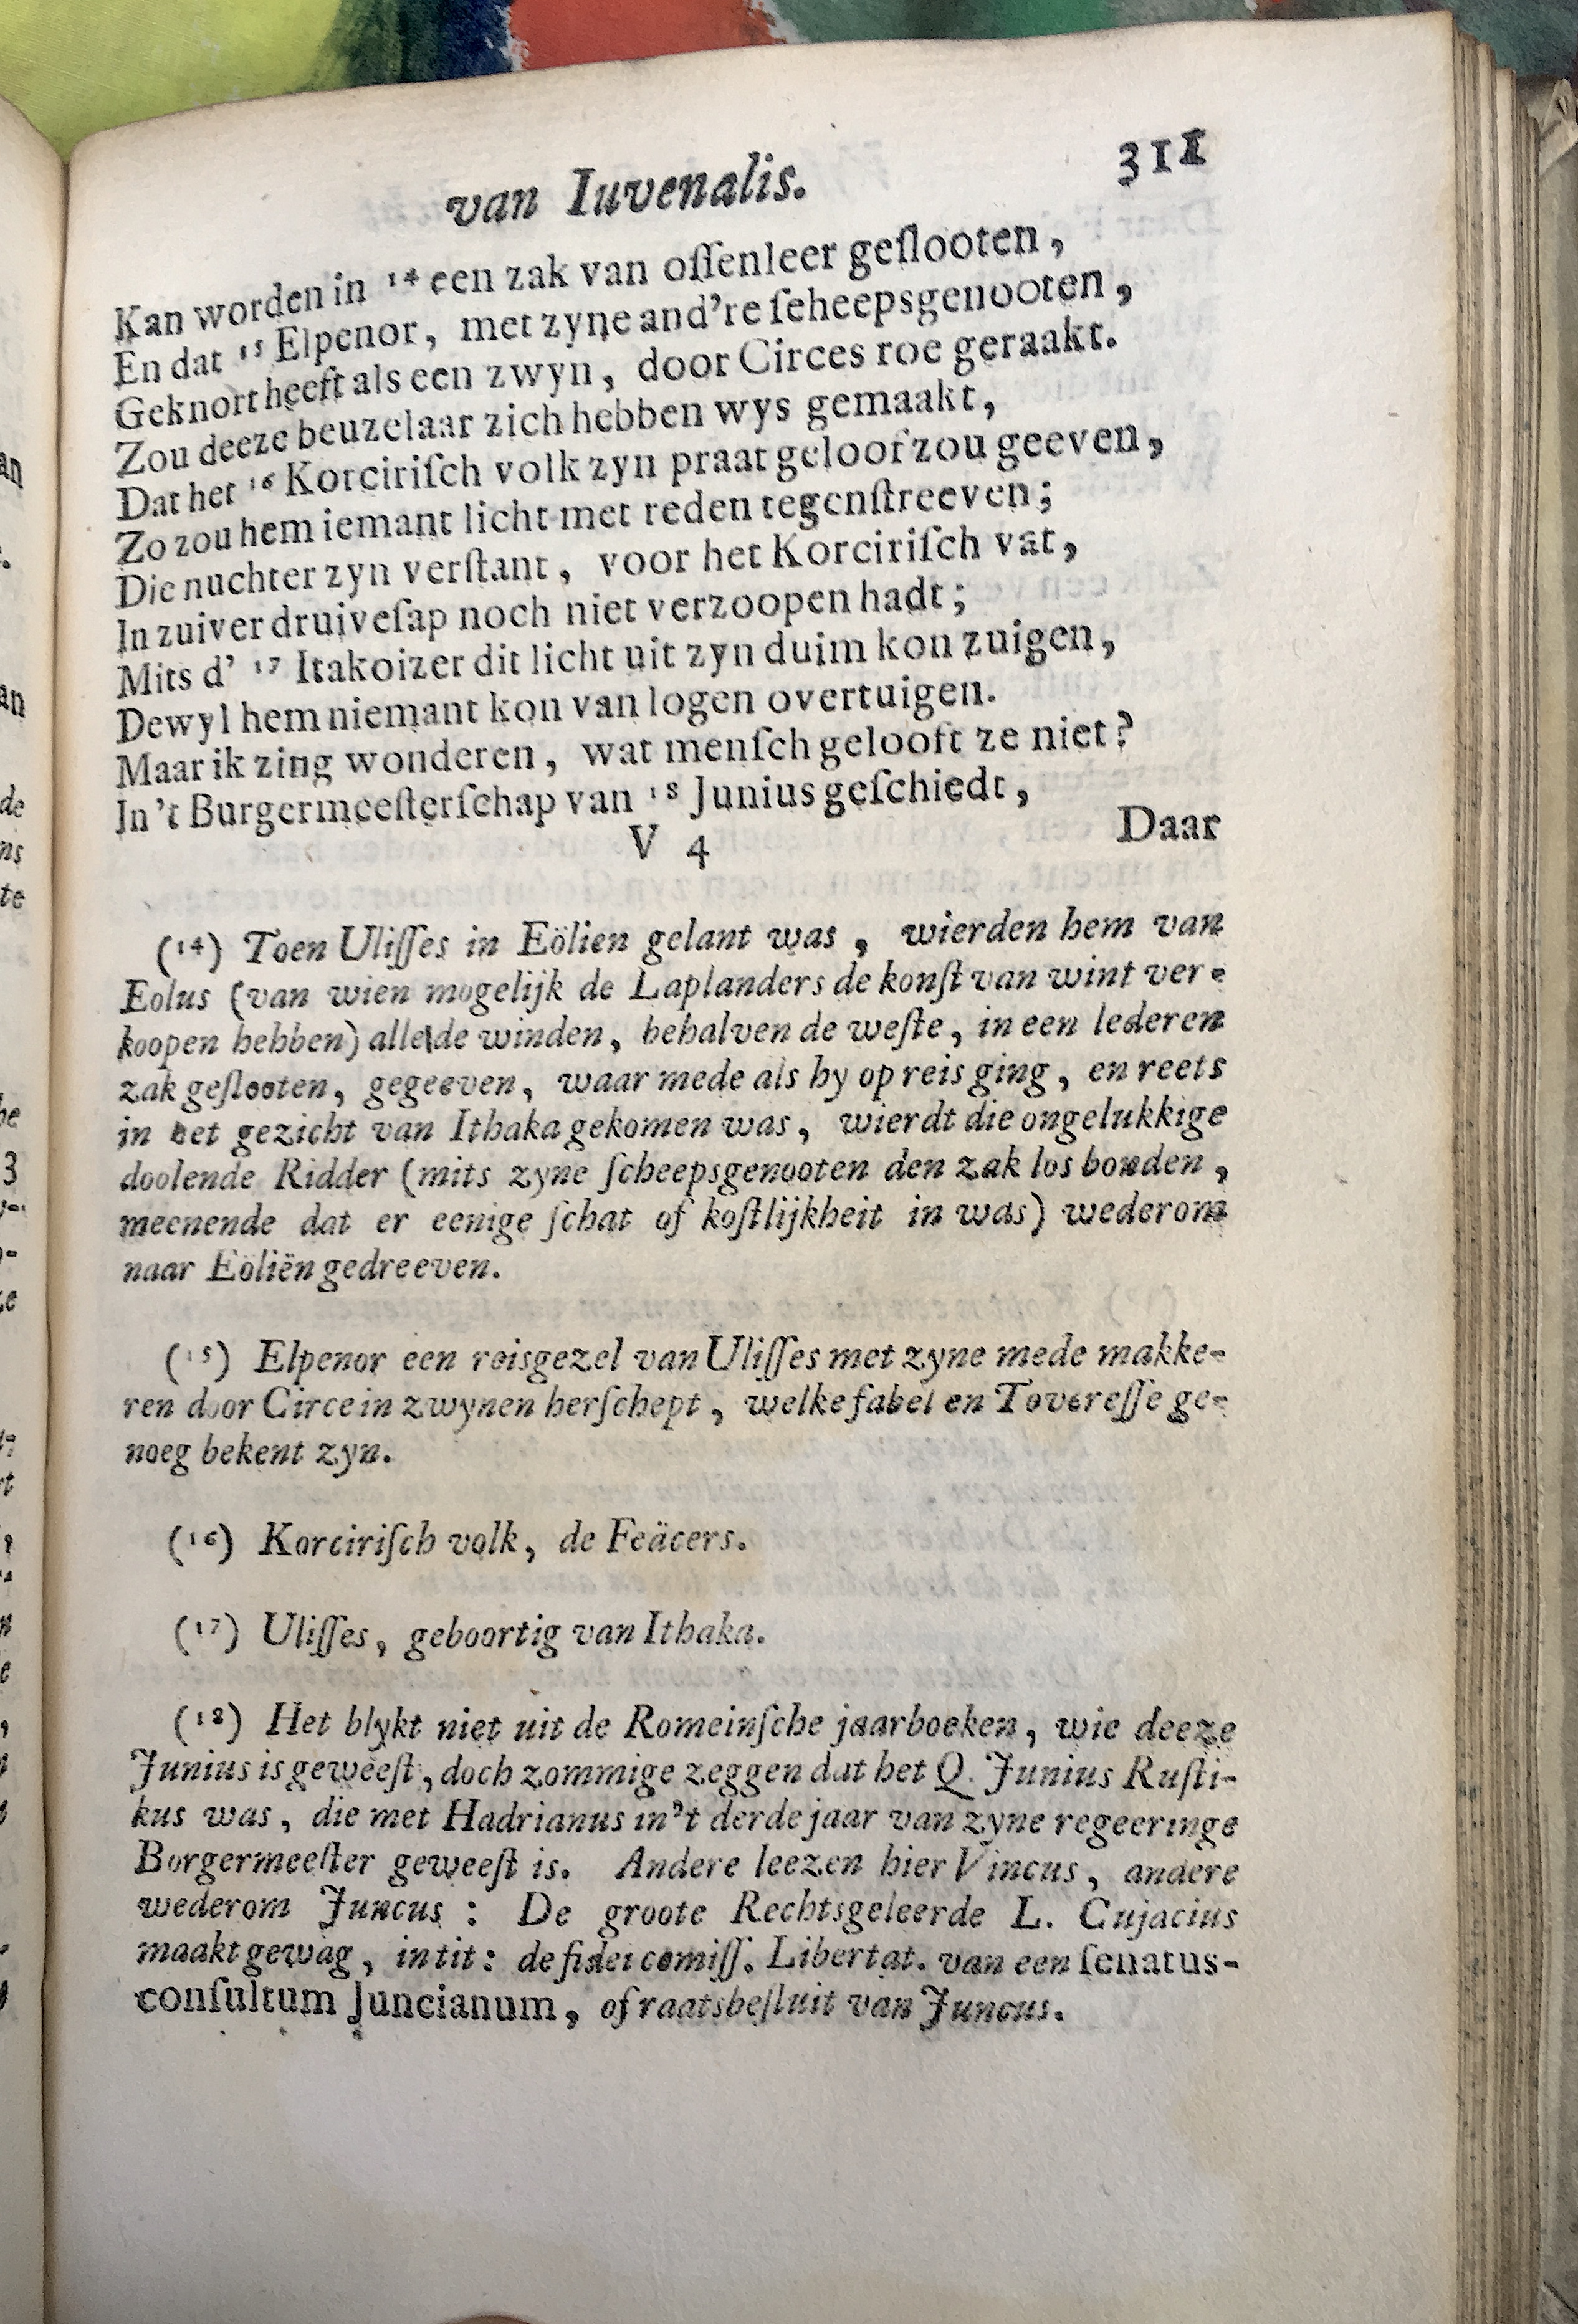 van Iuvenalis. 311
Kan worden in ¹⁴ een zak van oſſenleer geſlooten,
En dat ¹⁵ Elpenor, met zyne and're ſeheepsgenooten,
Geknort heeft als een zwyn, door Circes roe geraakt.
Zou deeze beuzelaar zich hebben wys gemaakt,
Dat het ¹⁶ Korciriſch volk zyn praat geloof zou geeven,
Zo zou hem iemant licht met reden tegenſtreeven;
Die nuchter zyn verſtant, voor het Korciriſch vat,
In zuiver druiveſap noch niet verzoopen hadt;
Mits d' ¹⁷ Itakoizer dit licht uit zyn duim kon zuigen,
Dewyl hem niemant kon van logen overtuigen.
Maar ik zing wonderen, wat menſch gelooft ze niet?
In 't Burgermeeſterſchap van ¹⁸ Junius geſchiedt,
V 4 Daar
(¹⁴) Toen Uliſſes in Eölien gelant was, wierden hem van
Eolus (van wien mogelijk de Laplanders de konſt van wint ver-
koopen hebben) alle de winden, behalven de weſte, in een lederen
zak geſlooten, gegeeven, waar mede als hy op reis ging, en reets
in het gezicht van Ithaka gekomen was, wierdt die ongelukkige
doolende Ridder (mits zyne ſcheepsgenooten den zak los bonden,
meenende dat er eenige ſchat of koſtlijkheit in was) wederom
naar Eöliën gedreeven.
(¹⁵) Elpenor een reisgezel van Uliſſes met zyne mede makke-
ren door Circe in zwynen herſchept, welke fabel en Tovereſſe ge-
noeg bekent zyn.
(¹⁶) Korciriſch volk, de Feäcers.
(¹⁷) Uliſſes, geboortig van Ithaka.
(¹⁸) Het blykt niet uit de Romeinſche jaarboeken, wie deeze
Junius is geweeſt, doch zommige zeggen dat het Q. Junius Ruſti-
kus was, die met Hadrianus in 't derde jaar van zyne regeeringe
Borgermeeſter geweeſt is. Andere leezen hier Vincus, andere
wederom Juncus: De groote Rechtsgeleerde L. Cujacius
maakt gewag, in tit: de fidei comiſſ. Libertat. van een ſenatus-
conſultum Juncianum, of raatsbeſluit van Juncus.